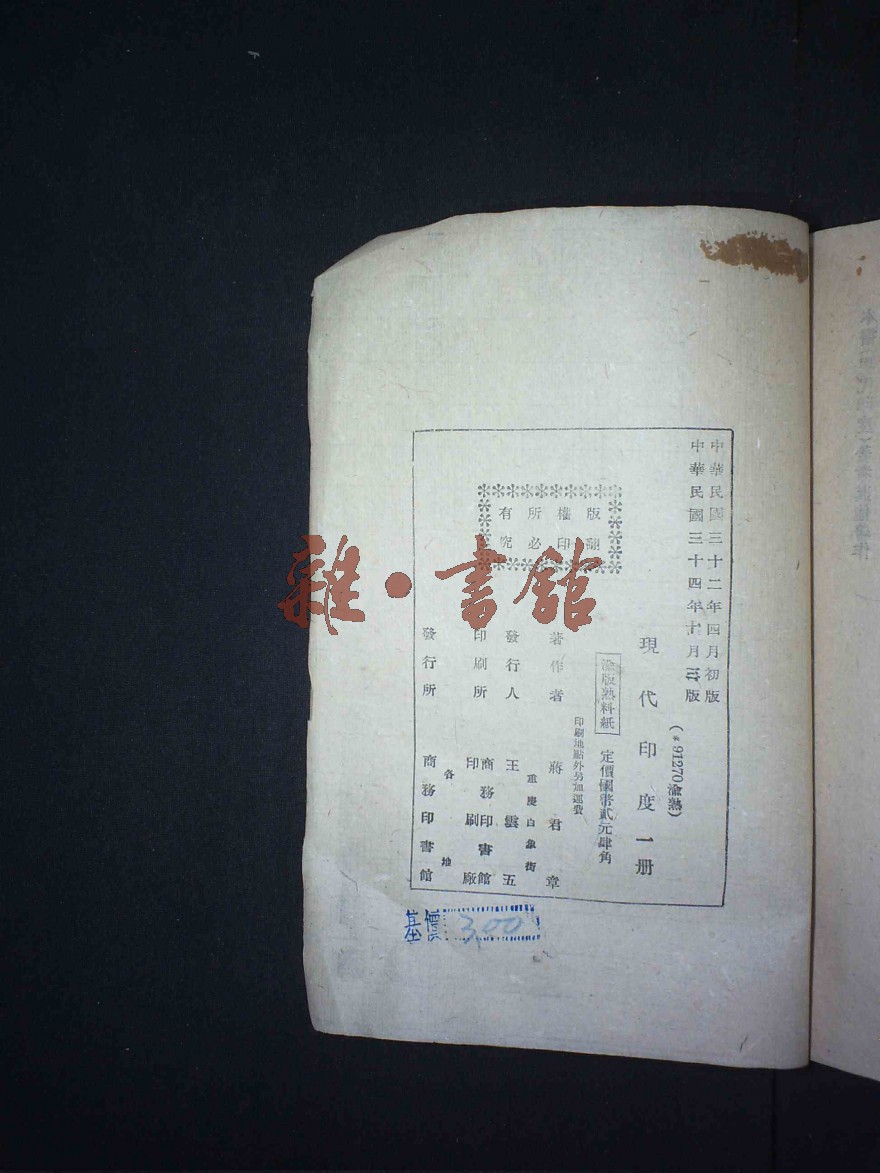 中華民國三十二年四月初版
中華民國三十四年十月版
(＃91270渝熟)
現代印度一册
渝版熟料紙
定價國幣貳元肆角
印刷地點外另加運費
版權所有
翻印必究
著作者 蔣君章
重慶白象街
發行人 王雲五
印刷所 商務印書館印刷廠
發行所 各地商務印書館
基價 3,00
雜·書館